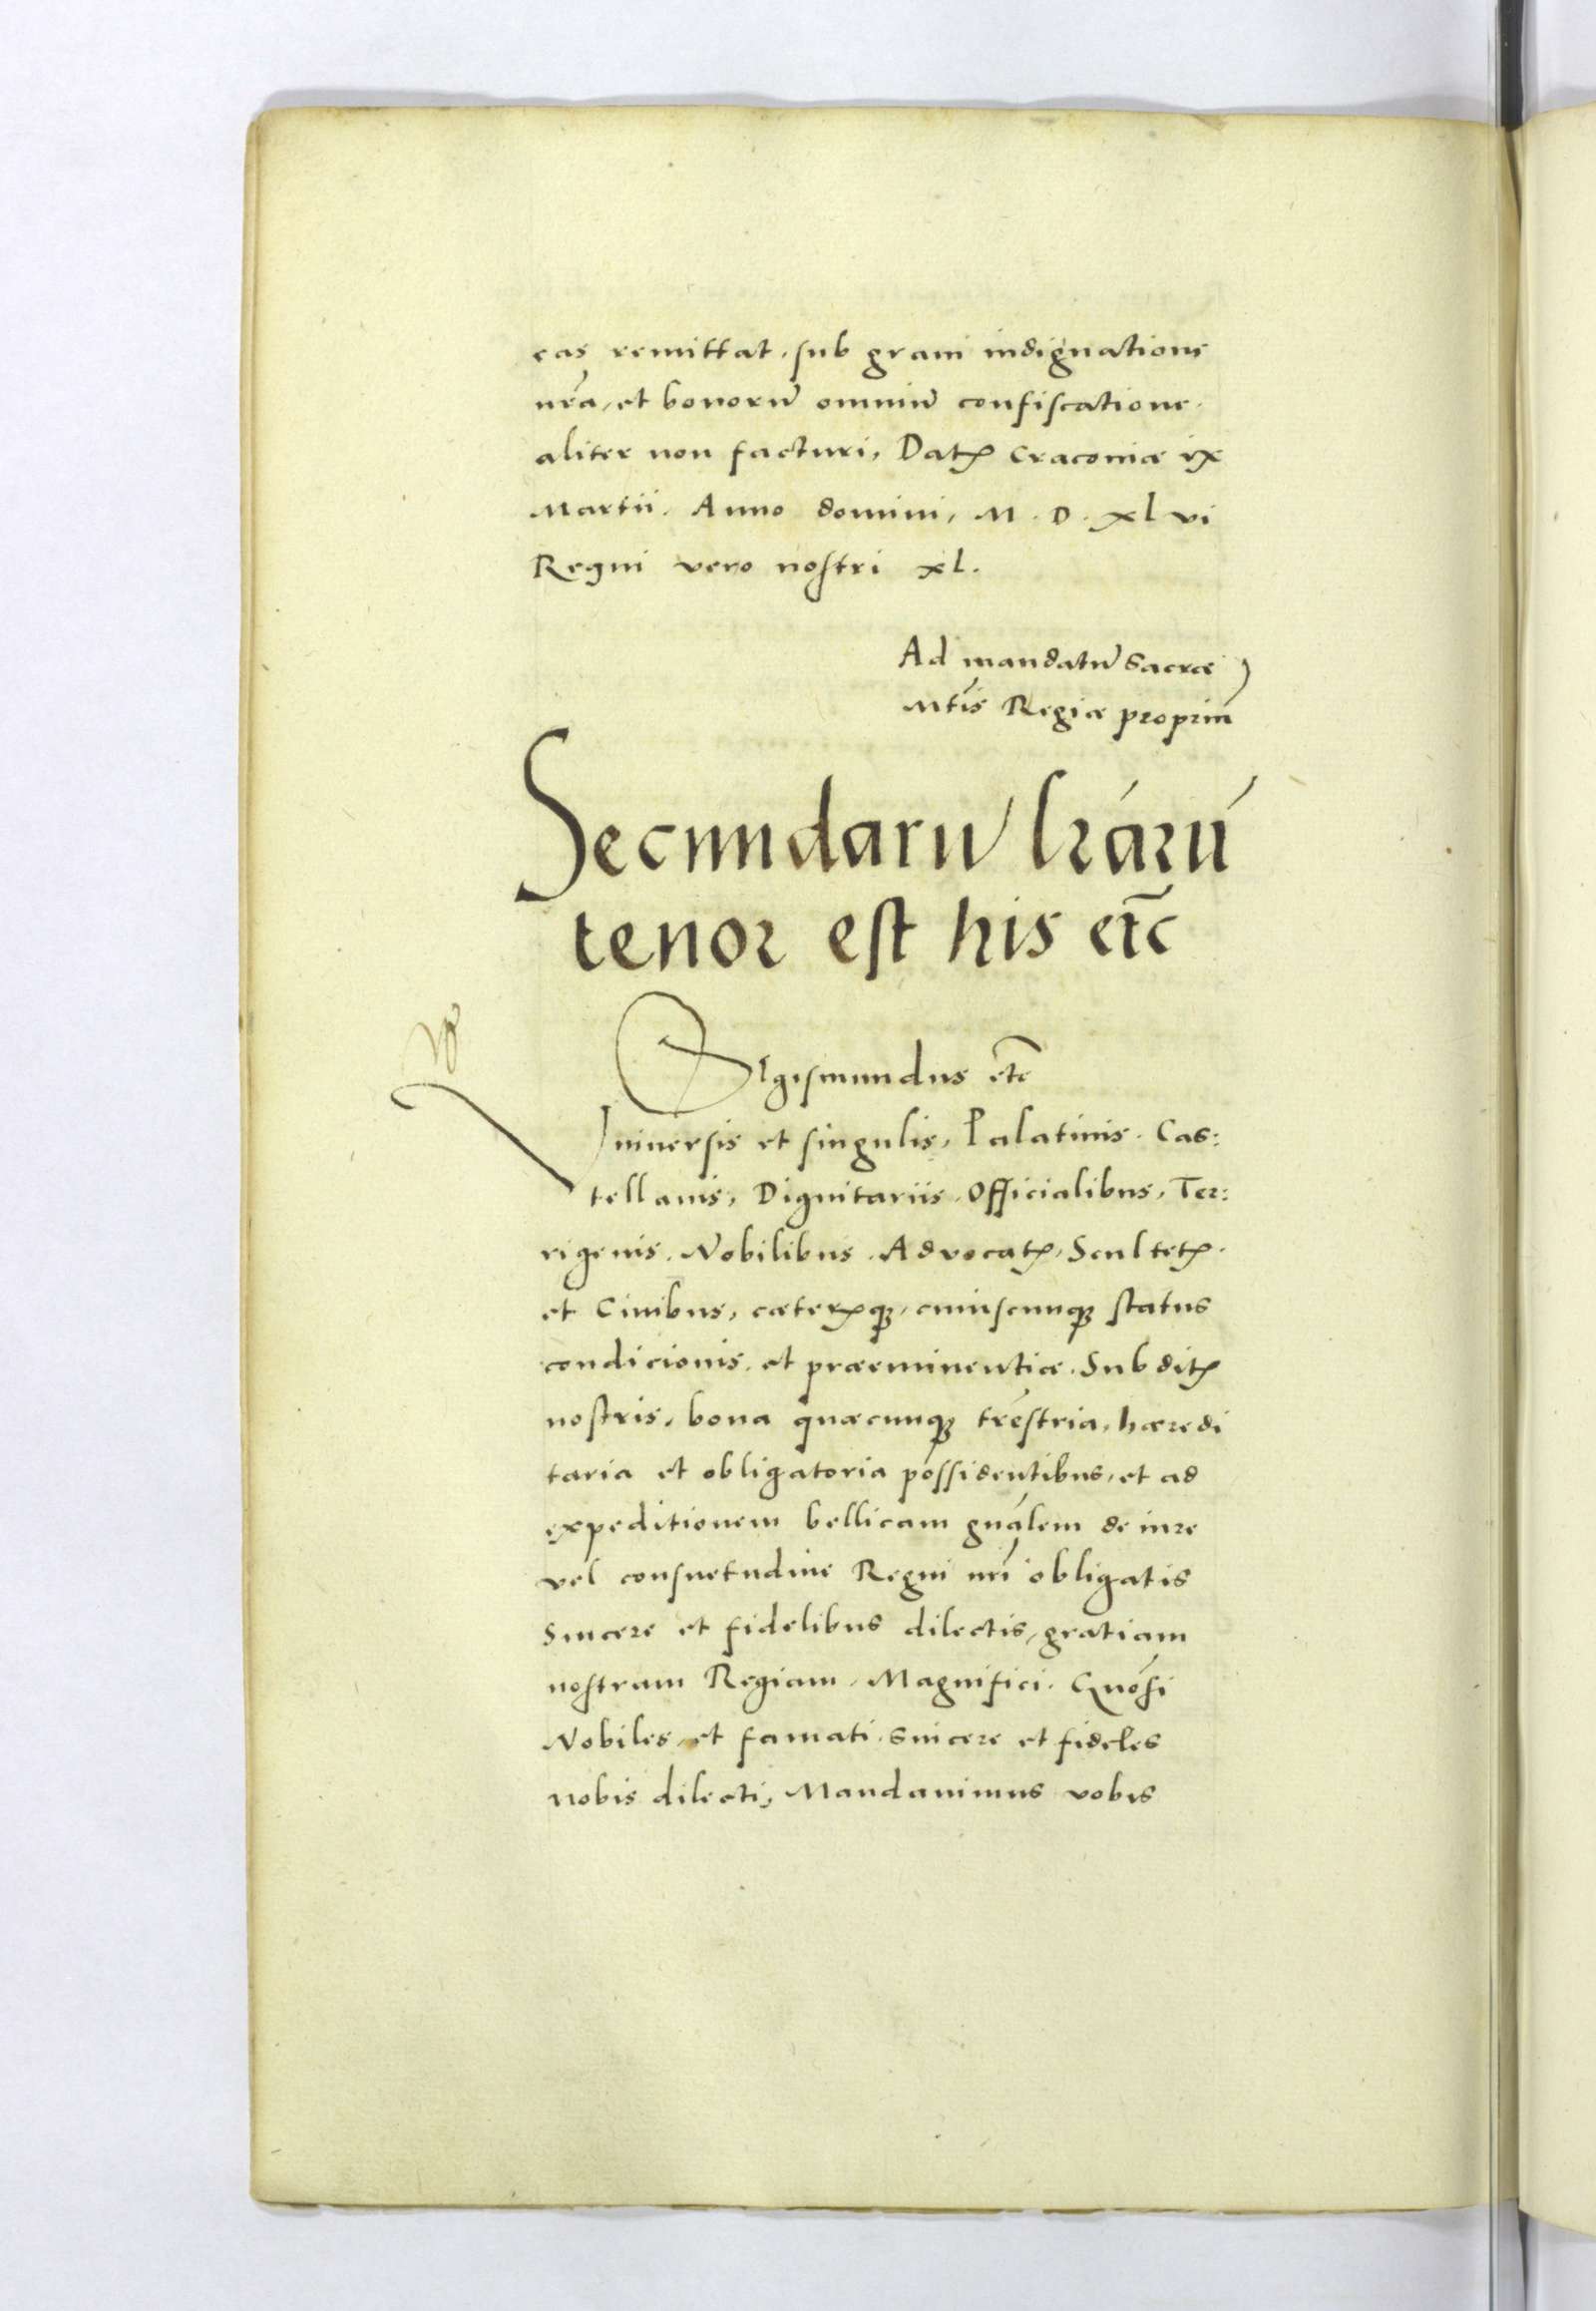 eas remittat, sub graui indignatione
nr̃a, et bonorũ omniũ confiscatione.
aliter non facturi, Datꝭ Cracouiæ ix
Martii. Anno domini, M. D. xl vi
Regni vero nostri xl.
Ad mandatũ Sacræ
Mtĩs Regiæ propriũ
Secundarũ lr̃arũ
tenor est his etc̃
Sigismundus etc̃
Vniuersis et singulis, Palatinis. Cas:
tellanis, Dignitariis, Officialibus, Ter:
rigenis. Nobilibus. Aduocatꝭ, Scultetꝭ.
et Ciuibus, cæterꝭqꝫ, cuiuscunqꝫ status
condicionis, et præeminentiæ. Subditꝭ
nostris, bona quæcunqꝫ trẽstria, hæredi
taria et obligatoria possidentibus, et ad
expeditionem bellicam gnãlem de iure
vel consuetudine Regni nrĩ obligatis
Sincere et fidelibus dilectis, gratiam
nostram Regiam. Magnifici. Gnõsi
Nobiles, et famati. Sincere et fideles
nobis dilecti, Mandauimus vobis